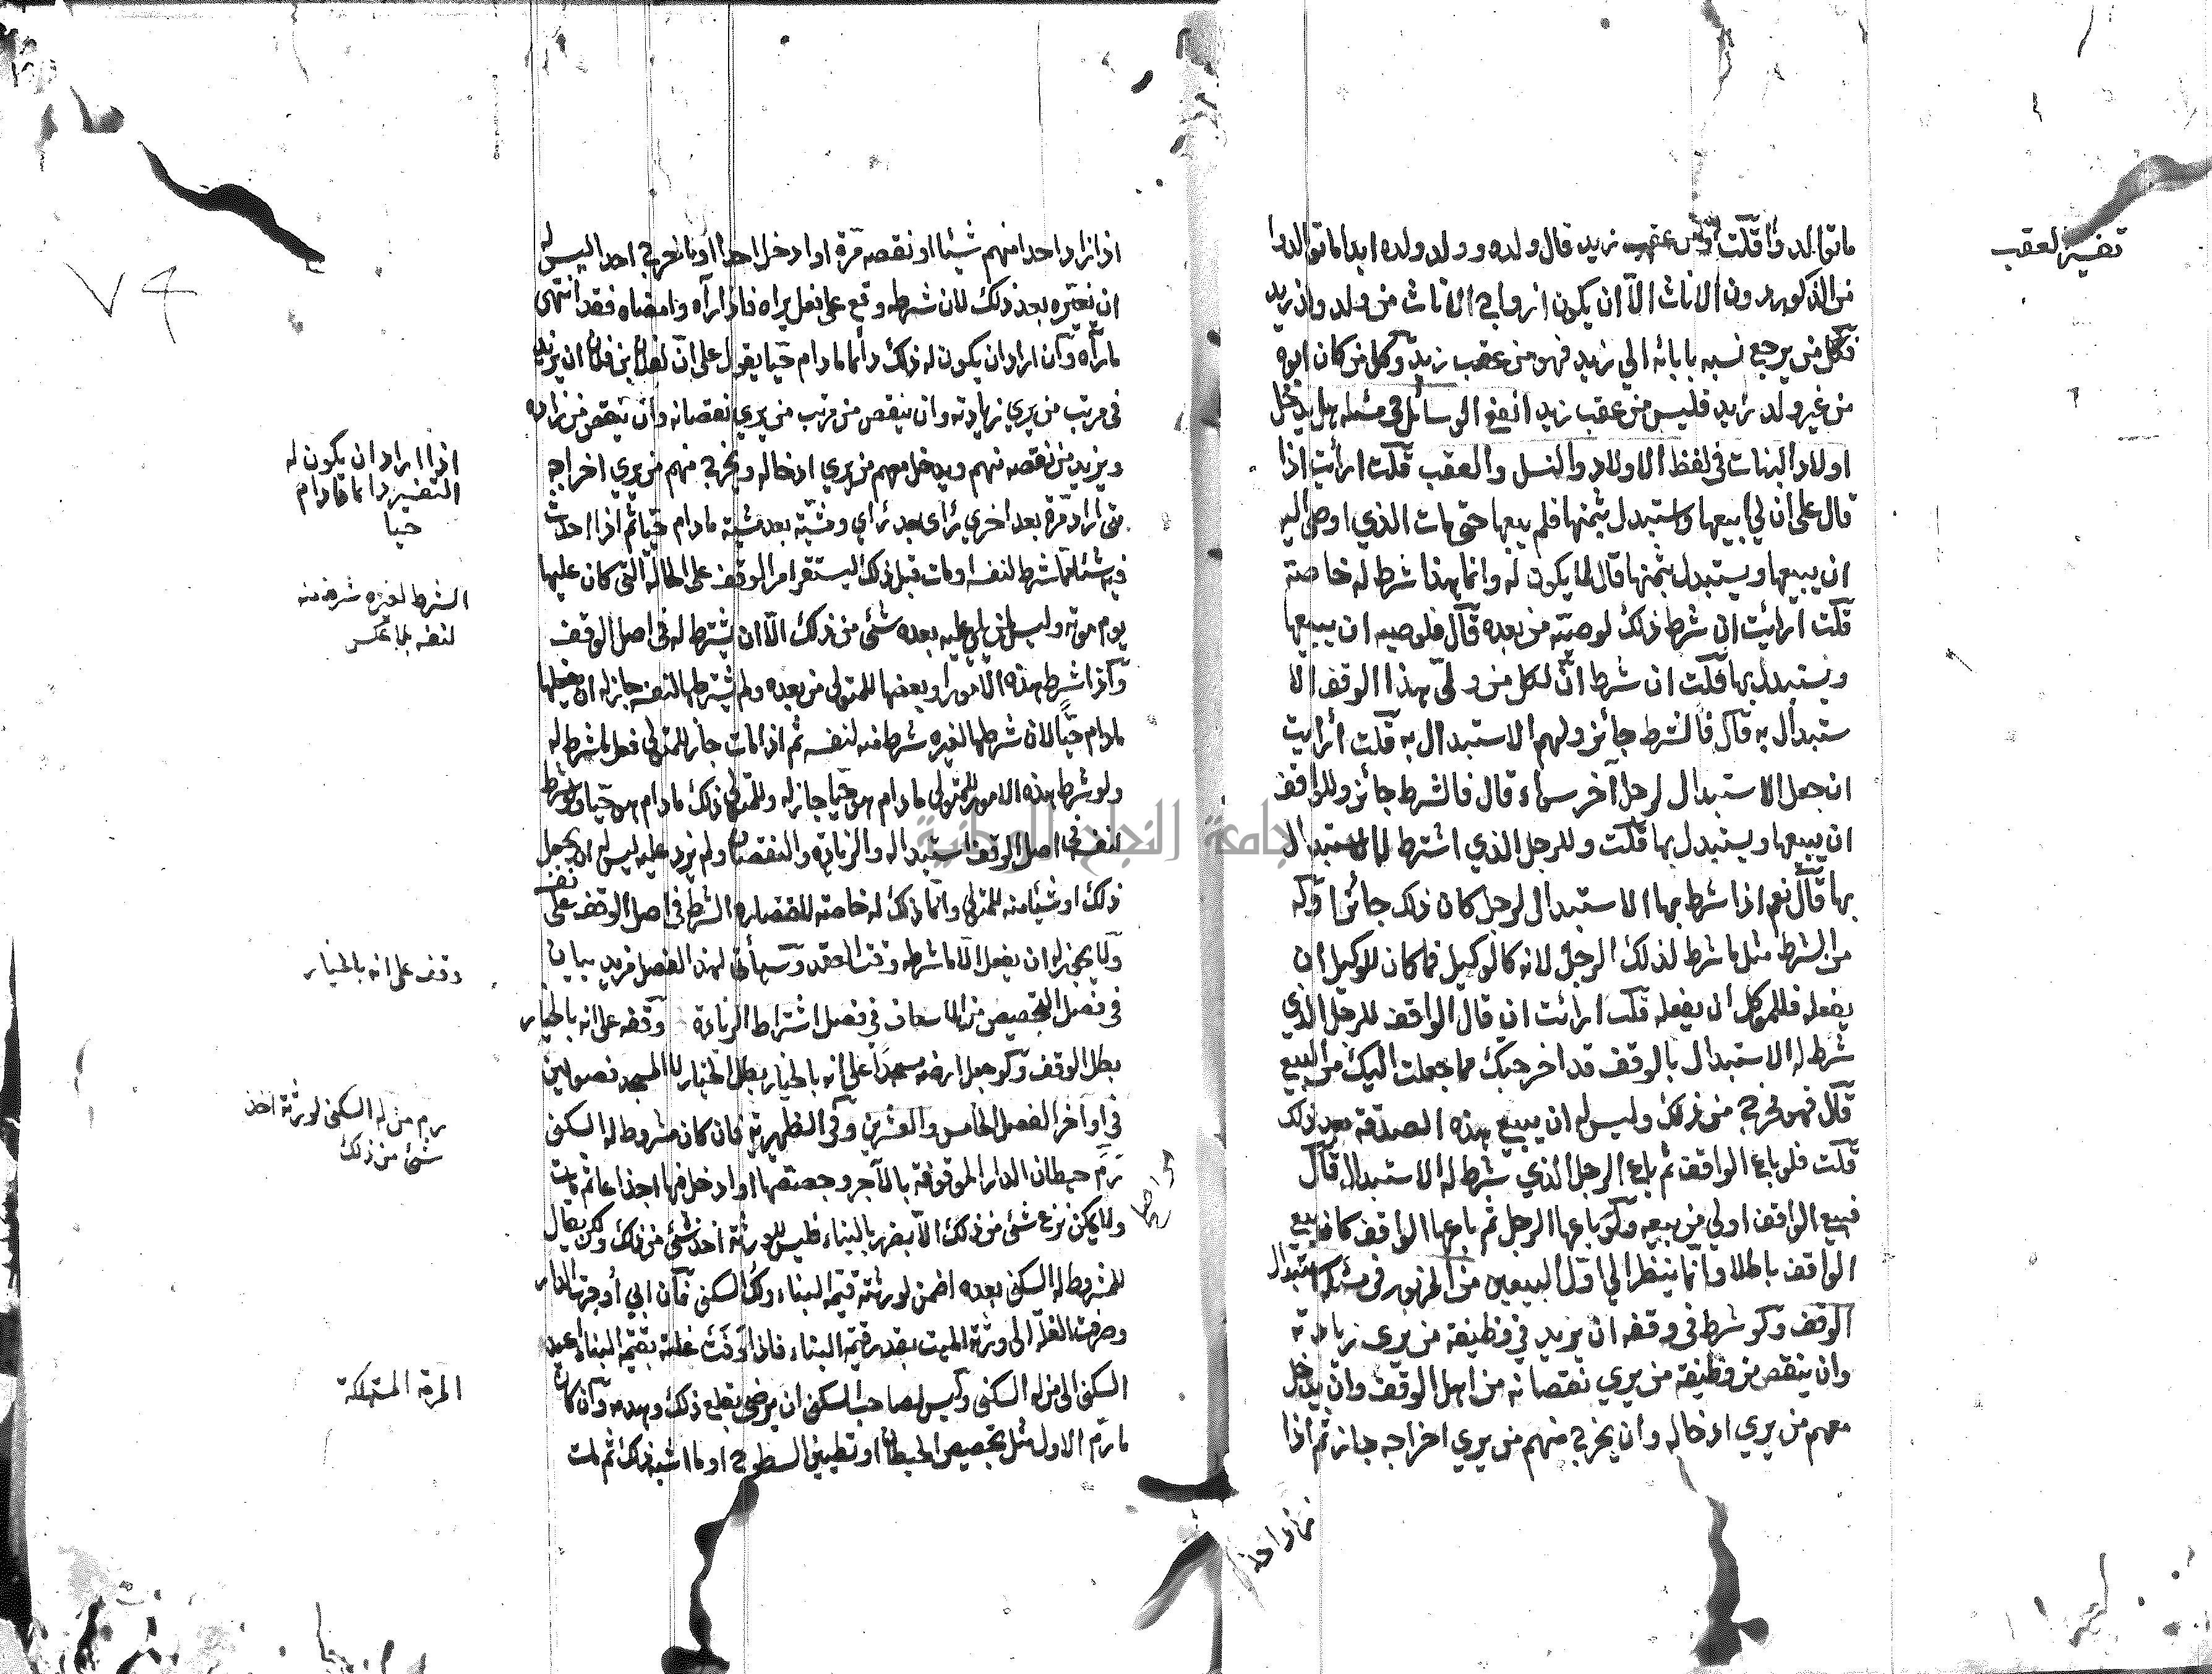 تفسير العقب
ماتوالدوا قلت ومن عقب زيد قال ولده وولد ولده ابدا ماتوالدوا
من الذكور دون الاناث الا ان يكون ازواج الاناث من ولد ولد زيد
فكل من يرجع نسبه بابائه الي زيد فهو من عقب زيد وكل من كان ابوه
من غير ولد زيد فليس من عقب زيد انفع الوسائل في مسئلة هل يدخل
اولاد البنات في لفظ الاولاد والنسل والعقب قلت ارأيت اذا
قال على ان لي ابيعها واستبدل بثمنها فلم يبعها حتى مات الذي اوصى اليه
ان يبيعها ويستبدل بثمنها قال لا يكون له وانما هذا شرط له خاصة
قلت ارايت ان شرط ذلك لوصيه من بعده قال فلوصيه ان يبيعها
ويستبدل بها قلت ان شرط ان لكل من ولي هذا الوقف الا
ستبدال به قال فالشرط جائز ولهم الاستبدال به قلت أرايت
ان جعل الاستبدال لرجل آخر سواه قال فالشرط جائز وللواقف
ان يبيعها ويستبدل بها قلت وللرجل الذي اشترط له الاستبدال
بها قال نعم اذا شرط بها الاستبدال لرجل كان ذلك جائزا وله
من الشرط مثل ما شرط لذلك الرجل لانه كالوكيل فما كان للوكيل ان
يفعله فللموكل ان يفعله قلت ارائت ان قال الواقف للرجل الذي
شرط له الاستبدال بالوقف قد اخرجتك مما جعلت اليك من البيع
قال فهو مخرج من ذلك وليس له ان يبيع هذه الصدقة بعد ذلك
قلت فلو باع الواقف ثم باع الرجل الذي شرط له الاستبدال قال
فبيع الواقف اولي من بيعه ولو باعها الرجل ثم باعها الواقف كان بيع
الواقف باطلا وانما ينظر الي اول البيعين من المزبور في مسئلة استبدال
الوقف ولو شرط في وقفه ان يزيد في وظيفة من يرى زيادته
وان ينقص من وظيفة من يري نقصانه من اهل الوقف وان يدخل
معهم من يري ادخاله وان يخرج منهم من يري اخراجه جاز ثم اذا
زاد احدا
اذا زاد احدا منهم شيئا او نقصه مرة او ادخل احدا او اخرج احدا ليس له
ان يغيره بعد ذلك لان شرطه وقع على فعل يراه فاذا رآه وامضاه فقد انتهى
ما رآه وان اراد ان يكون له ذلك دائما مادام حيا يقول على ان لفلان بن فلان ان يزيد
في مرتب من يري زيادته وان ينقص من مرتب من يري نقصانه وان ينقص من زاده
ويزيد من نقصه منهم ويدخل معهم من يري ادخاله ويخرج منهم من يري اخراجه
متى اراد مرة بعد اخري رأي بعد رأي ومشية بعد مشية مادام حيا ثم اذا احدث
فيه شيئا مما شرط لنفسه او مات قبل ذلك استقر امر الوقف على الحالة التى كان عليها
يوم موته وليس لمن يلي عليه بعده شئ من ذلك الا ان يشترط له في اصل الوقف
واذا شرط هذه الامور او بعضها للمتولي من بعده ولم يشترطها لنفسه جاز له ان يفعلها
مادام حيا لان شرطها لغيره شرط منه لنفسه ثم اذا مات جاز للمتولي فعل ما شرط له
ولو شرط هذه الامور للمتولي مادام هو حيا جاز له وللمتولي ذلك مادام هو حيا ولو شرط
لنفسه في اصل الوقف استبداله والزيادة والنقصان ولم يزد عليه ليس له ان يجعل
ذلك او شيئا منه للمتولي وانما ذلك له خاصة لاقتصاره الشرط في اصل الوقف على نفسه
ولا يجوز له ان يفعل الا ما شرطه وقت العقد وسيأتي لهذا الفصل مزيد بيان
في فصل التخصيص من الاسعاف في فصل اشتراط الزيادة وقفه على انه بالخيار
بطل الوقف ولو جعل ارضه مسجدا على انه بالخيار بطل الخيار لا المسجد فصولين
في اواخر الفصل الخامس والعشرين وفي الظهيرية فان كان مشروط له السكنى
رم حيطان الدار الموقوفة بالآجر وجصصها او ادخل فيها اجذاعا ثم مات
ولا يمكن نزع شئ من ذلك الا يضر بالبناء فليس للورثة اخذ شئ من ذلك ولكن يقال
للمشروط له السكنى بعده اضمن لورثته قيمة البناء ولك السكنى فان ابي أوجرت الدار
وصرفت الغلة الى ورثة الميت بقدر قيمة البناء فاذا وفت غلته بقيمة البناء اعيد
السكنى الى من له السكنى وليس لصاحب السكنى ان يرضى بقلع ذلك وهدمه وان كان
ما رم الاول مثل تجصيص الحيطان او تطيين السطوح او ما اشبه ذلك ثم مات
اذا اراد ان يكون له
التغيير دائما مادام
حيا
الشرط لغيره شرط منه
لنفسه بلا عكس
وقف على انه بالخيار
رم من له السكنى لورثته اخذ
شئ من ذلك
المرمة المستهلكة
جامعة النجاح الوطنية